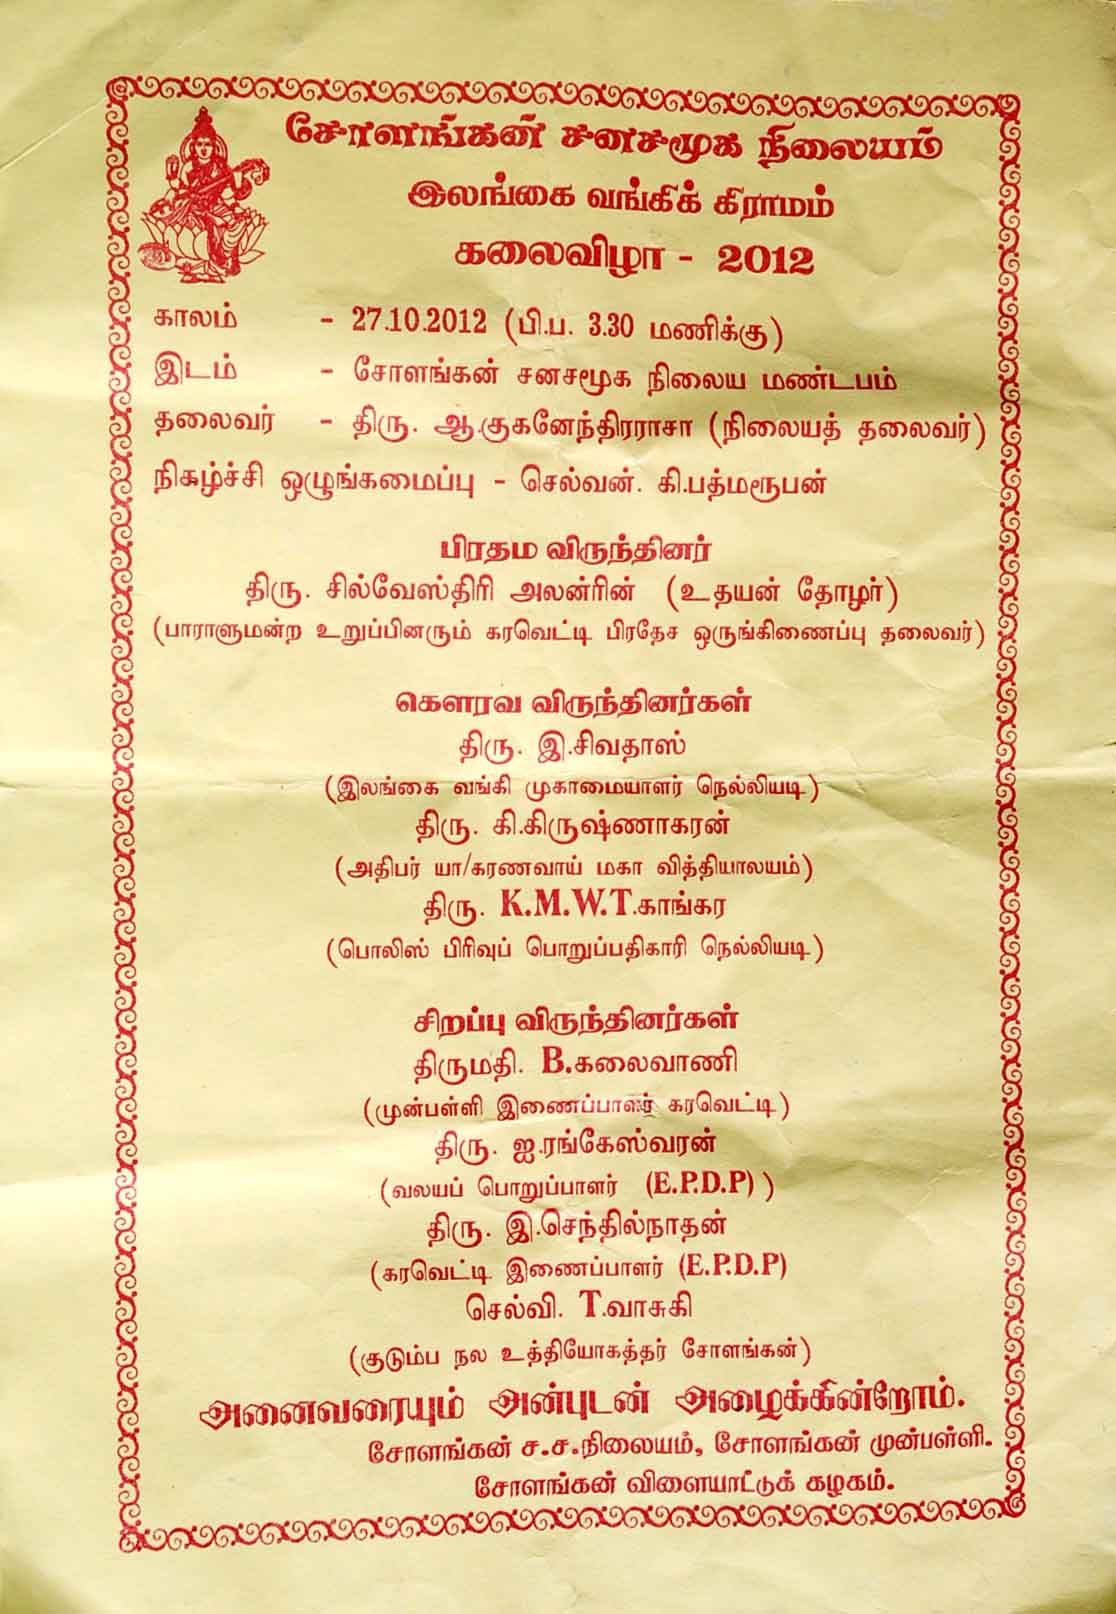 சோளங்கன் சனசமூக நிலையம்
இலங்கை வங்கிக் கிராமம்
கலைவிழா - 2012
காலம் - 27.10.2012 (பி.ப. 3.30 மணிக்கு)
இடம் - சோளங்கன் சனசமூக நிலைய மண்டபம்
தலைவர் - திரு. ஆ.குகனேந்திரராசா (நிலையத் தலைவர்)
நிகழ்ச்சி ஒழுங்கமைப்பு - செல்வன். கி.பத்மரூபன்
பிரதம விருந்தினர்
திரு. சில்வேஸ்திரி அலன்ரின் (உதயன் தோழர்)
(பாராளுமன்ற உறுப்பினரும் கரவெட்டி பிரதேச ஒருங்கிணைப்பு தலைவர்)
கௌரவ விருந்தினர்கள்
திரு. இ.சிவதாஸ்
(இலங்கை வங்கி முகாமையாளர் நெல்லியடி)
திரு. கி.கிருஷ்ணாகரன்
(அதிபர் யா/கரணவாய் மகா வித்தியாலயம்)
திரு. K.M.W.T.காங்கர
(பொலிஸ் பிரிவுப் பொறுப்பதிகாரி நெல்லியடி)
சிறப்பு விருந்தினர்கள்
திருமதி. B.கலைவாணி
(முன்பள்ளி இணைப்பாளர் கரவெட்டி)
திரு. ஐ.ரங்கேஸ்வரன்
(வலயப் பொறுப்பாளர் (E.P.D.P) )
திரு. இ.செந்தில்நாதன்
(கரவெட்டி இணைப்பாளர் (E.P.D.P)
செல்வி. T.வாசுகி
(குடும்ப நல உத்தியோகத்தர் சோளங்கன்)
அனைவரையும் அன்புடன் அழைக்கின்றோம்.
சோளங்கன் ச.ச.நிலையம், சோளங்கன் முன்பள்ளி.
சோளங்கன் விளையாட்டுக் கழகம்.